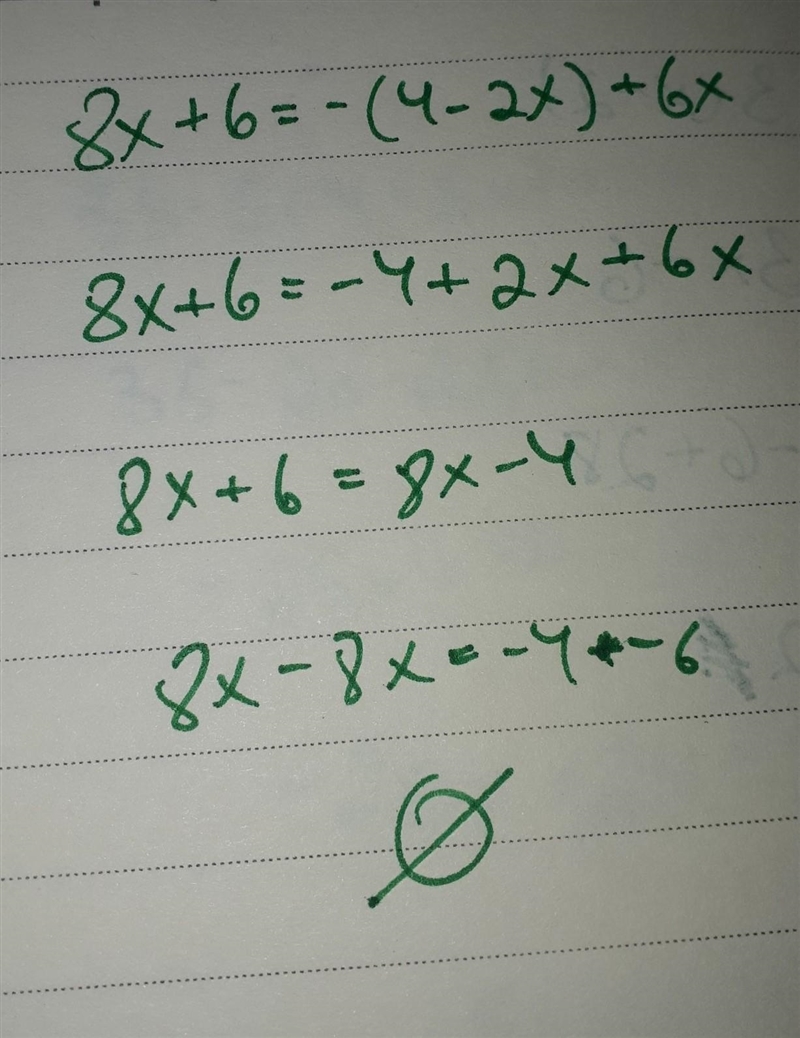 8x+6=-(4-2x)+6x
8x+6=-4+2x+6x
8x+6=8x-4
8x-8x=-4-6
∅